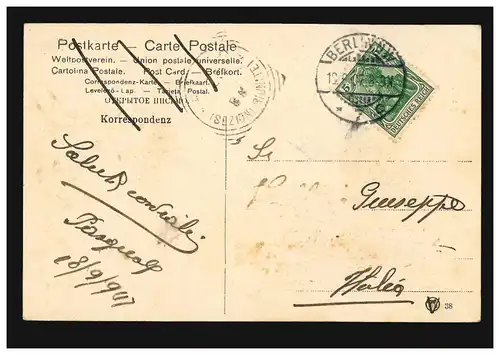 Postkarte – Carte Postale
Weltpostverein. – Union postale universelle.
Cartolina Postale. Post Card – Brefkort.
Correspondenz-Karte – Briefkaart.
Levelező-Lap. – Tarjeta Postal.
ОТКРЫТОЕ ПИСЬМО
Korrespondenz
BERLIN
DEUTSCHES REICH
Saluti cordiali
Pasquale
18/9/907
Giuseppe
Italia
38